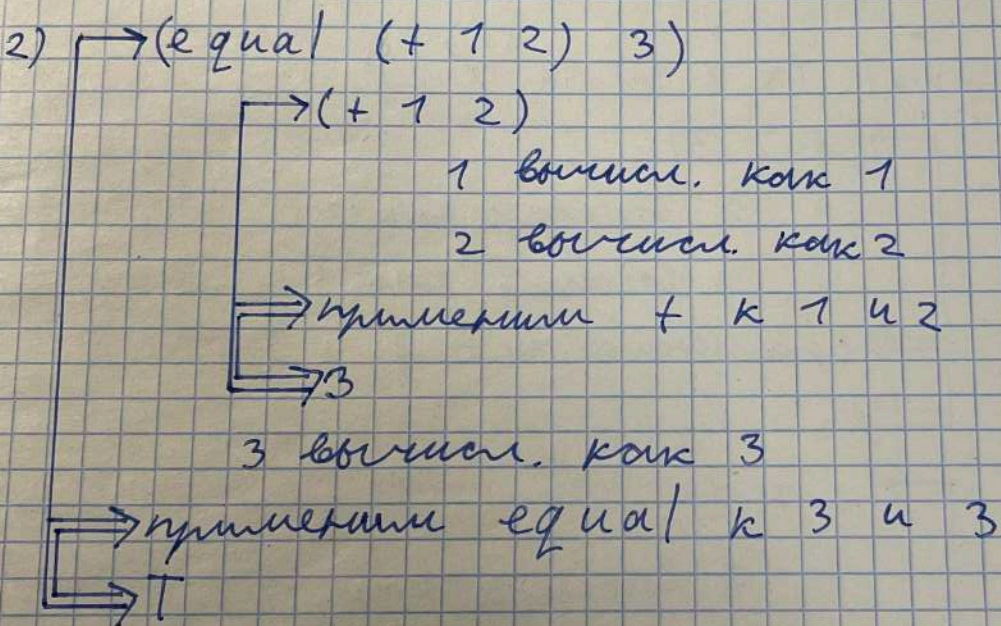 2) (equal (+ 1 2) 3)
(+ 1 2)
1 вычисл. как 1
2 вычисл. как 2
применим + к 1 и 2
3
3 вычисл. как 3
применим equal к 3 и 3
T